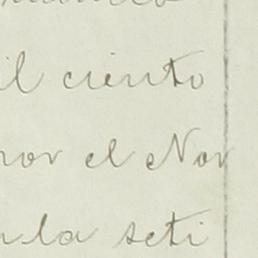 il ciento
por el Nor
la seti